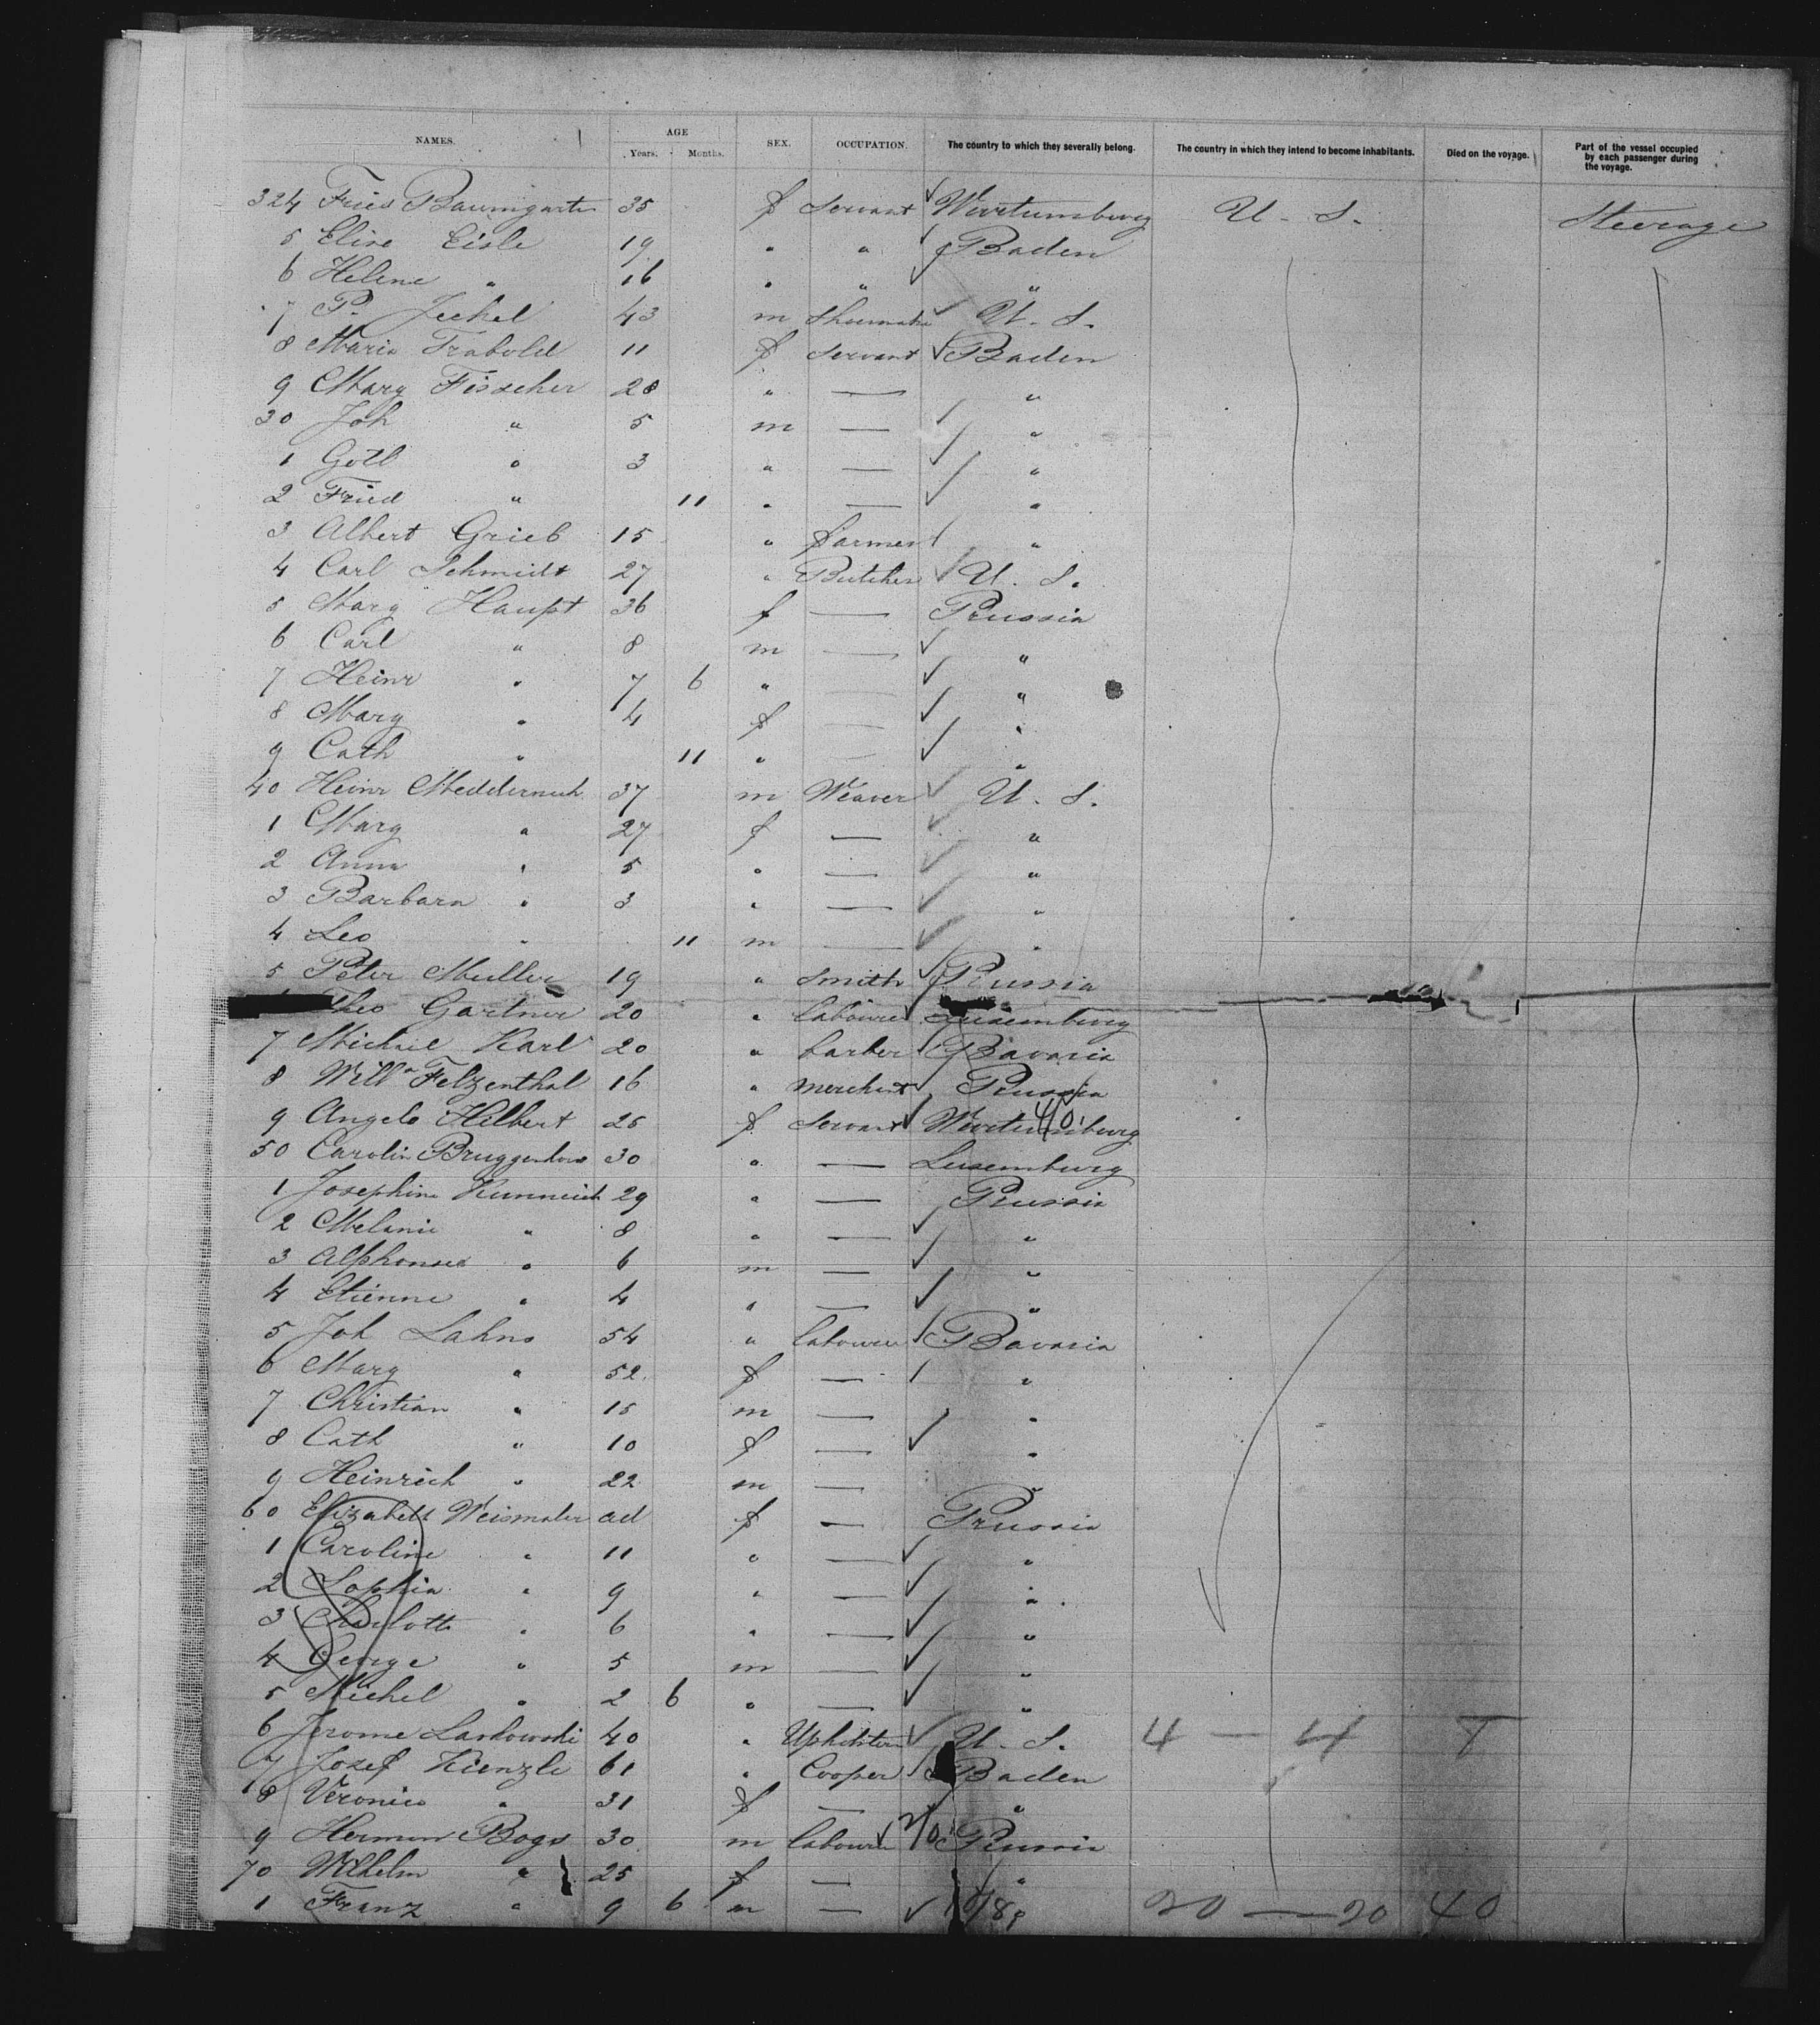 NAMES. AGE SEX. OCCUPATION. The country to which they severally belong. The country in which they intend to become inhabitants. Died on the voyage. Part of the vessel occupied by each passenger during the voyage.
Years. Months.
324 Fries Baumgarten 35 f Servant Wurtumburg U. S. Steerage
5 Elise Eisle 19 " " Baden
6 Helene " 16 " " "
7 P. Jeckel 43 m Shoemaker U. S.
8 Maria Trabold 11 f Servant Baden
9 Marg Fisscher 28 " — "
30 Joh " 5 m — "
1 Gotl " 3 " — "
2 Fried " 11 " — "
3 Albert Grieb 15 " farmer "
4 Carl Schmidt 27 " Butcher U. S.
5 Marg Haupt 36 f — Prussia
6 Carl " 8 m — "
7 Heinr " 7 6 " — "
8 Marg " 4 f — "
9 Cath " 11 " — "
40 Heinr Meddernach 37 m Weaver U. S.
1 Marg " 27 f — "
2 Anna " 5 " — "
3 Barbara " 3 " — "
4 Leo " 11 m — "
5 Peter Muller 19 " Smith Prussia
Theo Gartner 20 " labourer Luxemburg
7 Michael Karl 20 " barber Bavaria
8 Willm Felzenthal 16 " merchant Prussia
9 Angelo Hilbert 25 f Servant Wurtumburg
50 Carolin 30 " — Luxemburg
1 Josephine 29 " — Prussia
2 Melanie " 8 " — "
3 Alphonse " 6 m — "
4 Etienne " 4 " — "
5 Joh Lahno 54 " labourer Bavaria
6 Marg " 52 f — "
7 Christian " 15 m — "
8 Cath " 10 f — "
9 Heinrich " 22 m — "
60 Elizabeth Weismaler ad f — Prussia
1 Caroline " 11 " — "
2 Sophia " 9 " — "
3 Charlotte " 6 " — "
4 George " 5 m — "
5 Michel " 2 6 " — "
6 Jerome Laskowski 40 " U. S. 4 — 4 T
7 Josef Kienzle 61 " Cooper Baden
8 Veronica " 31 f — "
9 Herman Bogs 30 m labourer Prussia
70 Wilhelm " 25 f — "
1 Franz " 9 6 m — 20 — 20 40